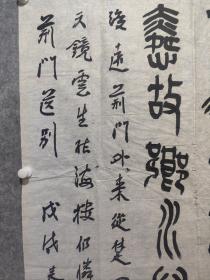 故鄉水
渡遠荊門外來從楚
天鏡雲生結海樓仍憐
荊門送別 戊戌